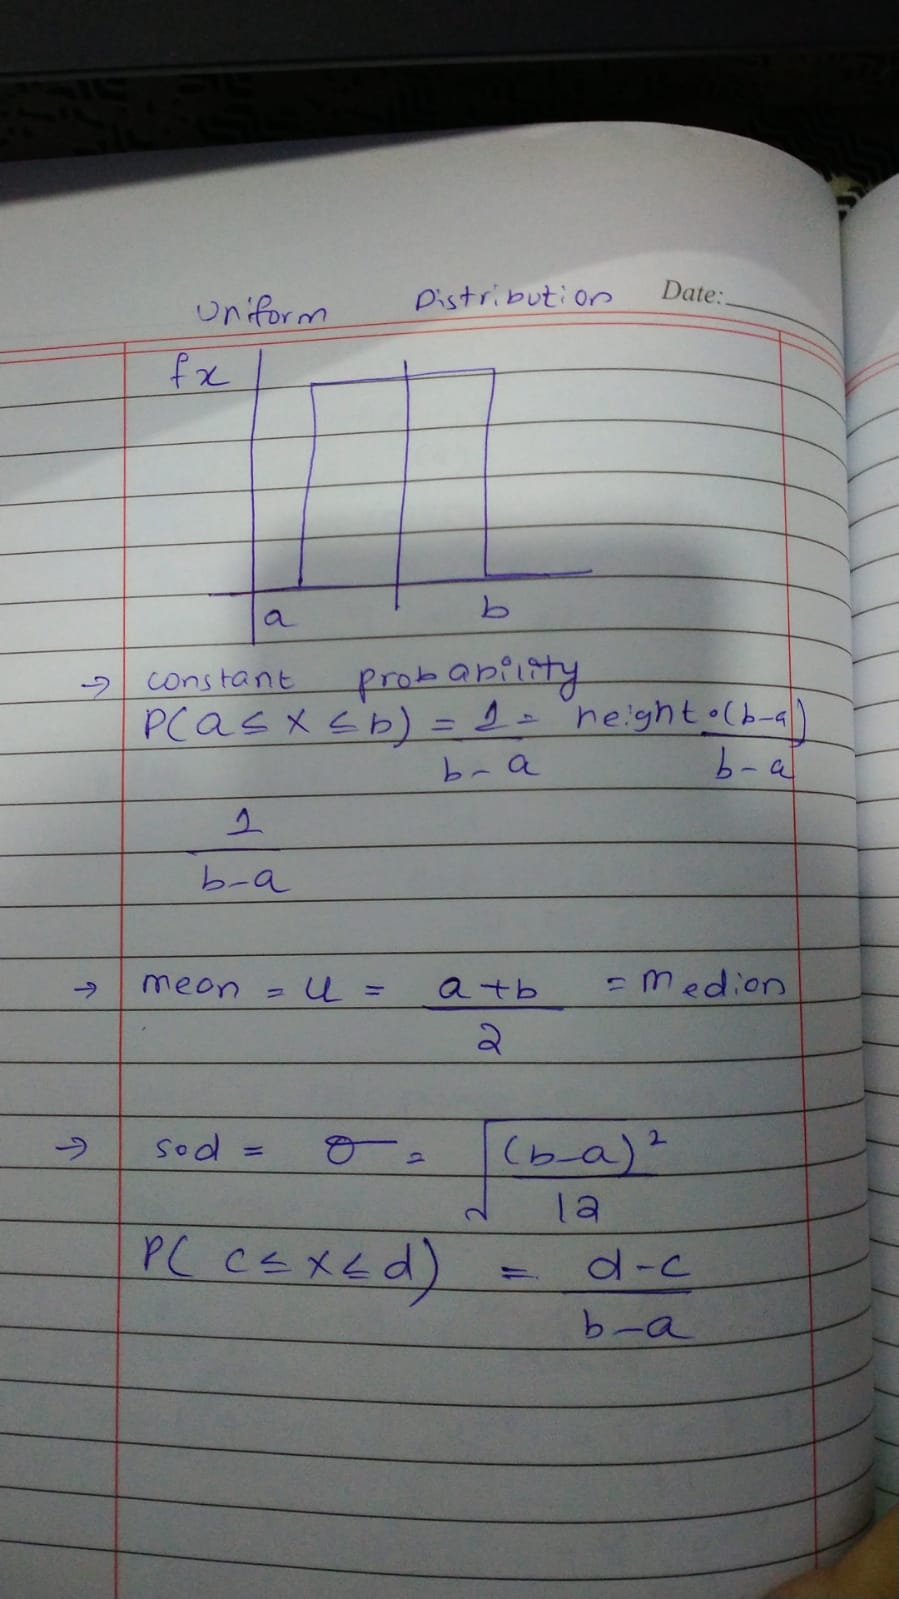 Uniform Distribution Date:
fx
a b
→ constant probability
P(a ≤ x ≤ b) = 1/(b-a) = height・(b-a)/(b-a)
1/(b-a)
→ meon = u = (a+b)/2 = Medion
→ s・d = σ = √((b-a)²/12)
P( c ≤ x ≤ d) = (d-c)/(b-a)